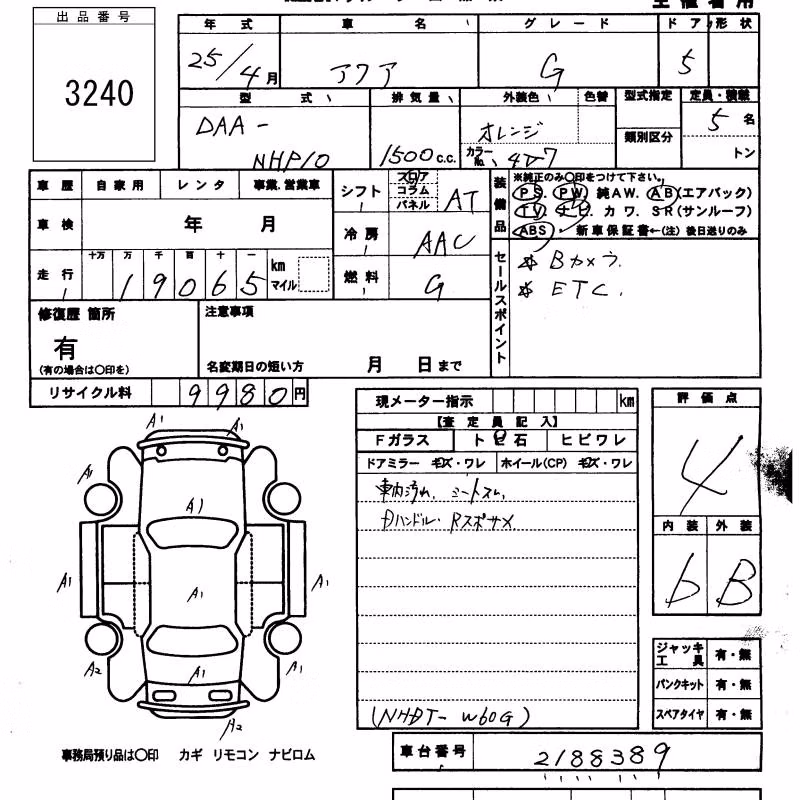 出品番号
3240
年式 車名 グレード ドア 形状
25/4月 アクア G 5
型式 排気量 外装色 色替 型式指定 定員・積載
DAA-
NHP10 1500c.c. オレンジ 5名
カラーNo. 4V7 類別区分 トン
車歴 自家用 レンタ 事業.営業車
車検 年 月
走行 十万 万 千 百 十 一
19065 km マイル
シフト フロア コラム パネル AT
冷房 AAC
燃料 G
装備品 ※純正のみ○印をつけて下さい。
PS. PW. 純AW. AB(エアバック)
TV. ナビ. カワ. SR(サンルーフ)
ABS. 新車保証書←(注) 後日送りのみ
セールスポイント
※ Bカメラ.
※ ETC.
修復歴 箇所
有
(有の場合は○印を)
注意事項
名変期日の短い方 月 日まで
リサイクル料 9980円
現メーター指示 km
【査定員記入】
Fガラス トビ石 ヒビワレ
ドアミラー キズ・ワレ ホイール(CP) キズ・ワレ
車内汚れ, シートスレ,
Dハンドル・Rスポサメ
(NHDT-W60G)
評価点
4
内装 外装
b B
ジャッキ工具 有・無
パンクキット 有・無
スペアタイヤ 有・無
A1 A1
A1
A1
A1 A1 A1
A2 A1 A1
A2
事務局預り品は○印 カギ リモコン ナビロム
車台番号 2188389